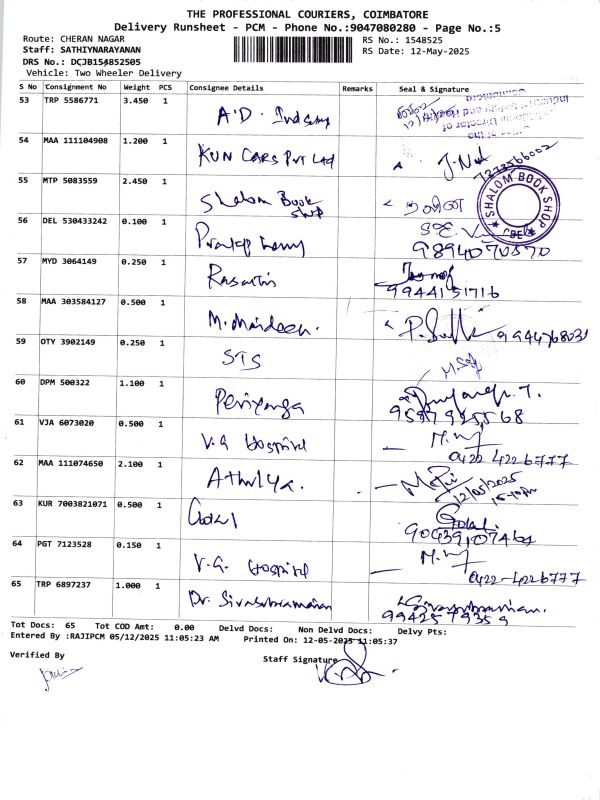 THE PROFESSIONAL COURIERS, COIMBATORE
Delivery Runsheet - PCM - Phone No.:9047080280 - Page No.:5
Route: CHERAN NAGAR
RS No.: 1548525
Staff: SATHIYNARAYANAN
RS Date: 12-May-2025
DRS No.: DCJB154852505
Vehicle: Two Wheeler Delivery
S No Consignment No Weight PCS Consignee Details Remarks Seal & Signature
53 TRP 5586771 3.450 1 A'D. Industry
54 MAA 111104908 1.200 1 KUN CARS Pvt Ltd
7373566002
55 MTP 5083559 2.450 1 Shalom Book Shop நவீன்
SHALOM BOOK SHOP
CBE
56 DEL 530433242 0.100 1
9894070870
57 MYD 3064149 0.250 1
9944151716
58 MAA 303584127 0.500 1 M. Mohideen. 9944768031
59 OTY 3902149 0.250 1 STS
60 DPM 500322 1.100 1 Periyanga
61 VJA 6073020 0.500 1 V.G Hospital
0422 4226777
62 MAA 111074650 2.100 1 Athulya.
12/05/2025
63 KUR 7003821071 0.500 1 Gokul
64 PGT 7123528 0.150 1 V.G. Hospital
0422-4226777
65 TRP 6897237 1.000 1 Dr. Sivasubramanian Sivasubramanian.
9942579359
Tot Docs: 65 Tot COD Amt: 0.00 Delvd Docs: Non Delvd Docs: Delvy Pts:
Entered By :RAJIPCM 05/12/2025 11:05:23 AM Printed On: 12-05-2025 11:05:37
Verified By
Staff Signature